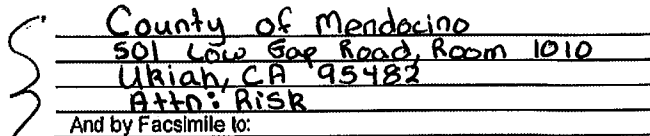 County of Mendocino
501 Low Gap Road, Room 1010
Ukiah, CA 95482
Attn: Risk
And by Facsimile to: